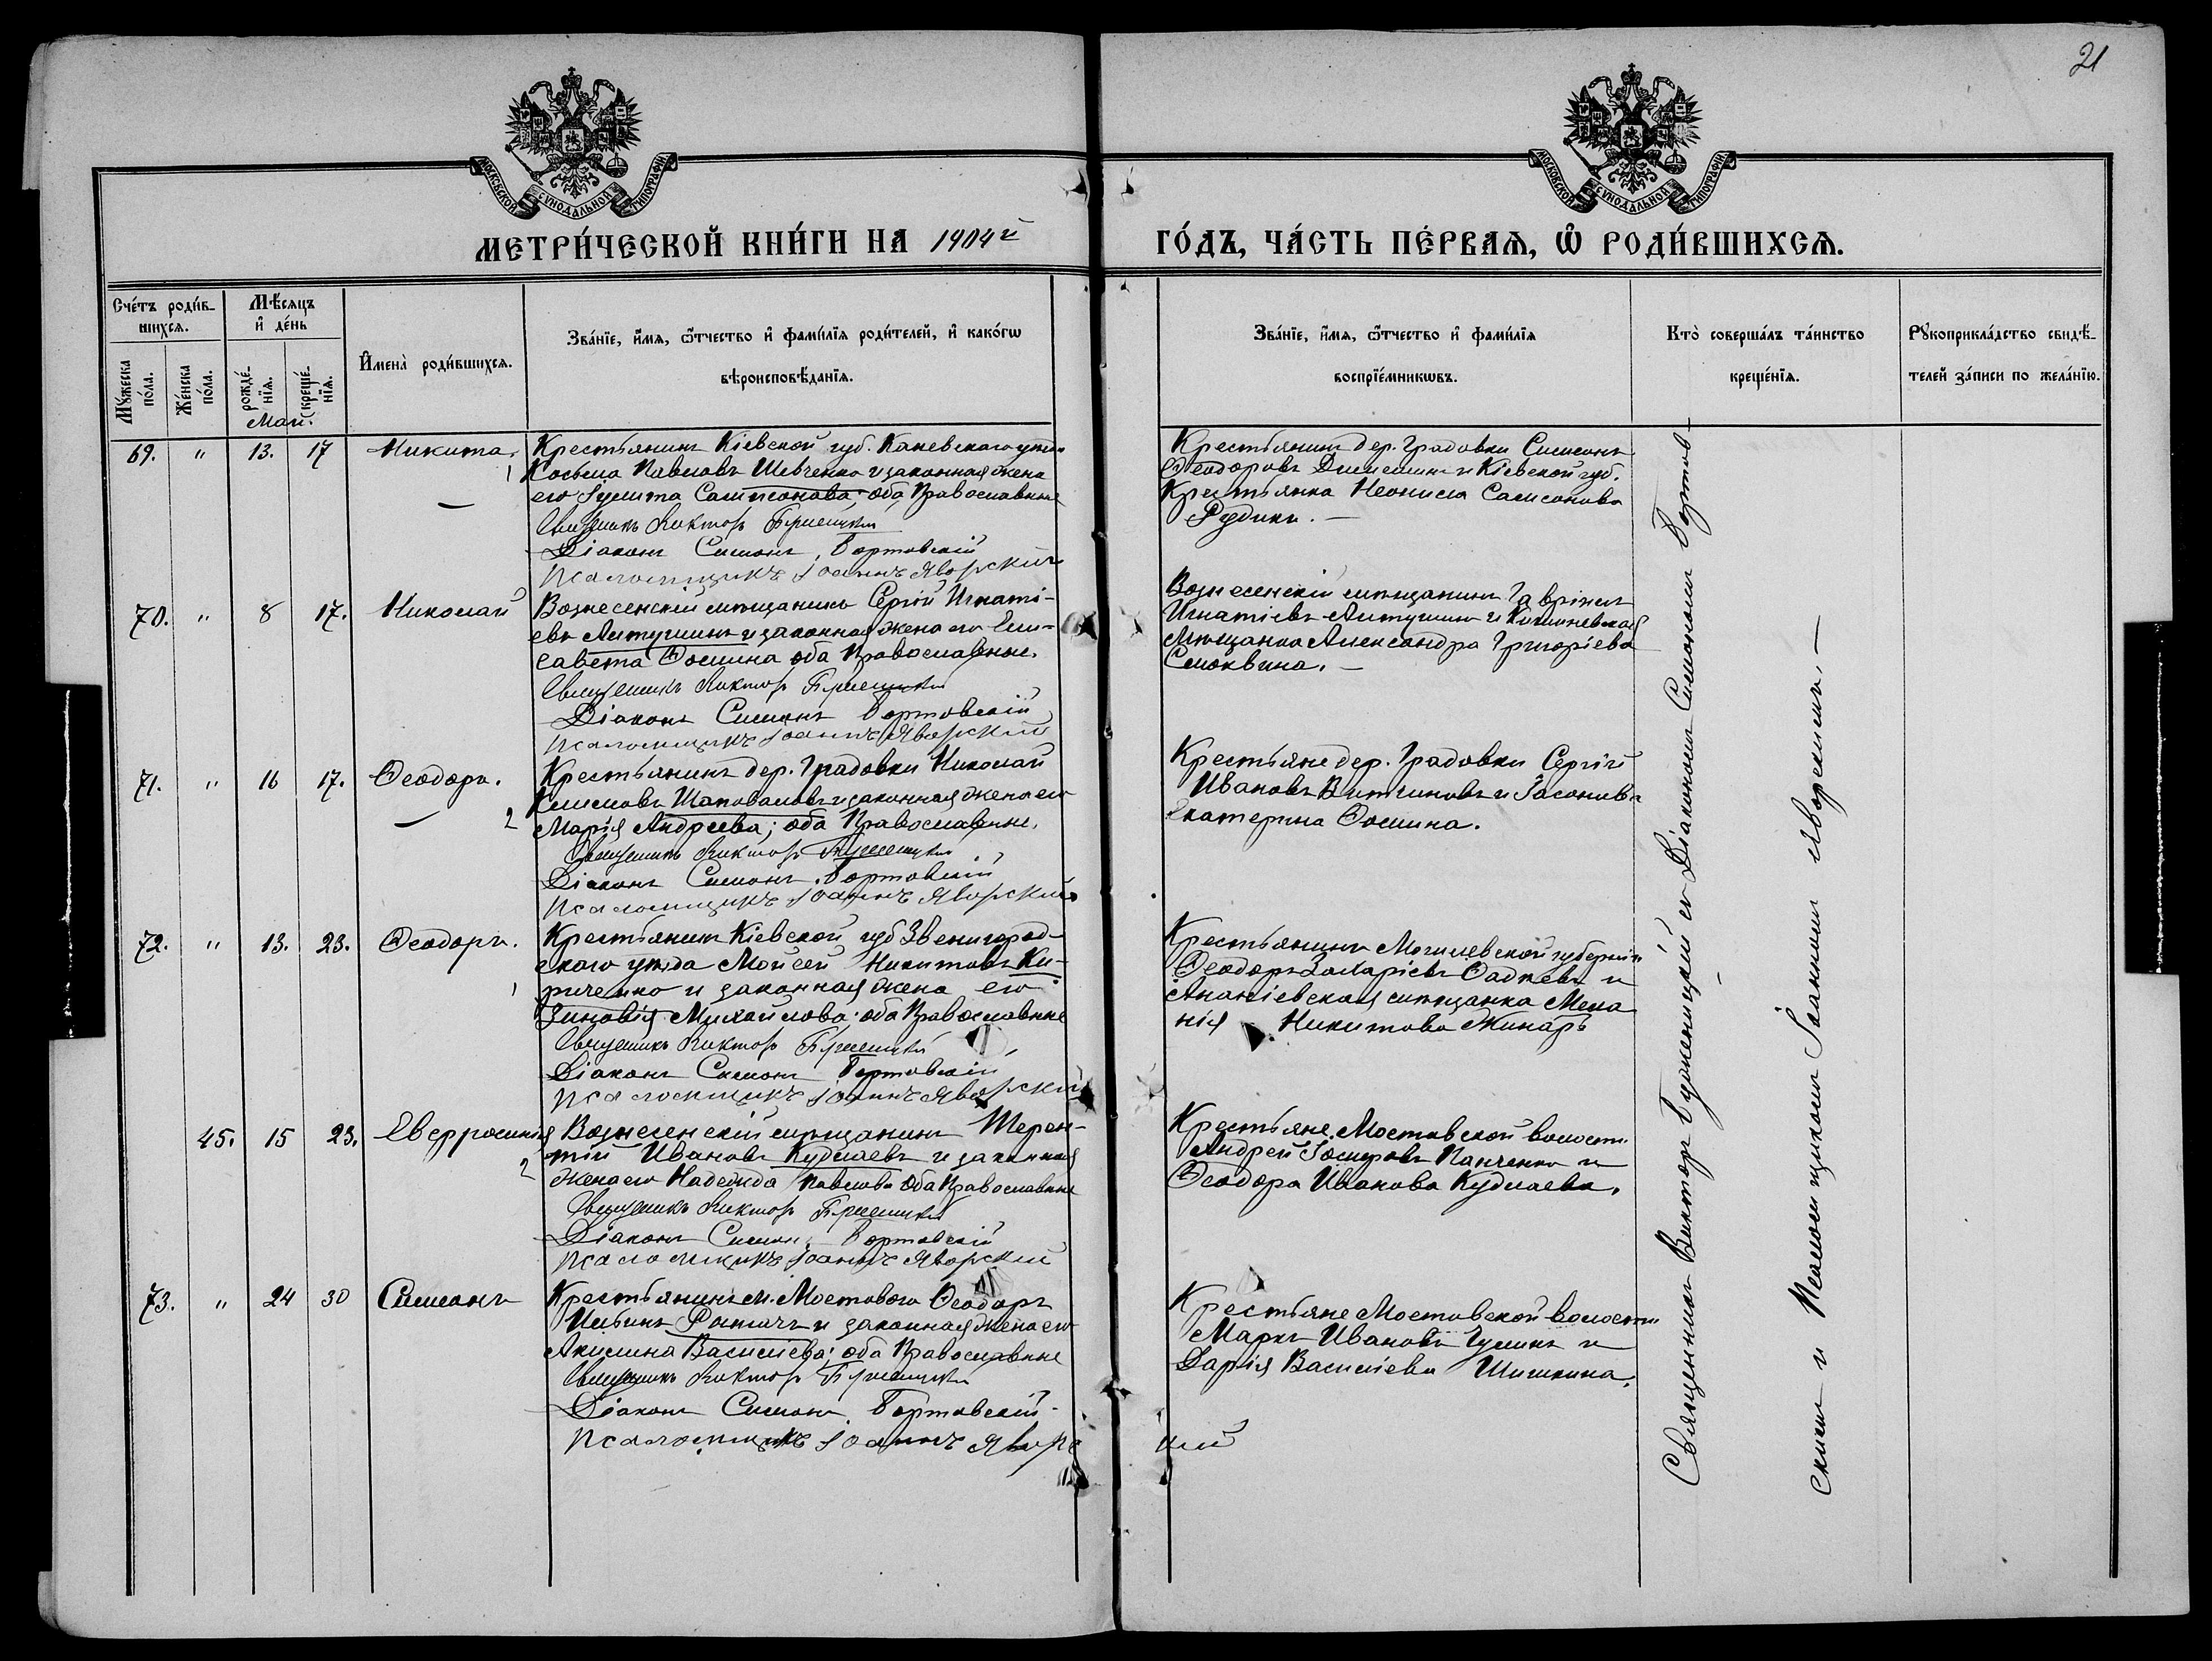 21
МОСКОВСКОЙ СУНОДАЛЬНОЙ ТИПОГРАФІИ
МОСКОВСКОЙ СУНОДАЛЬНОЙ ТИПОГРАФІИ
МЕТРИ́ЧЕСКОЙ КНИ́ГИ НА 1904й
ГО́ДЪ, ЧА́СТЬ ПЕ́РВАѦ, Ѡ҆ РОДИ́ВШИХСѦ.
Сче́тъ роди́в-
шихсѧ.
Мꙋ́жеска по́ла.
Же́нска по́ла.
Мѣ́сяцъ
и҆ де́нь
рожде́-
нїѧ.
креще́-
нїѧ.
И҆мена̀ роди́вшихсѧ.
Зва́нїе, и҆́мѧ, ѻ҆́тчество и҆ фами́лїѧ роди́телей, и҆ како́гѡ
вѣроисповѣ́данїѧ.
Зва́нїе, и҆́мѧ, ѻ҆́тчество и҆ фами́лїѧ
воспрїе́мникѡвъ.
Кто̀ соверша́лъ та́инство
креще́нїѧ.
Рꙋкоприкла́дство свидѣ́-
телей за́писи по жела́нїю.
Май.
69. " 13. 17 Никита.
Крестьянинъ Кіевской губ. Каневскаго уѣзда
Косьма Павловъ Шевченко и законная жена
его Іулита Сампсонова; оба Православные
Священникъ Викторъ
Діаконъ Симонъ Бортовскій
Псаломщикъ Іоаннъ Яворскій
Крестьянинъ дер. Градовки Симеонъ
Ѳеодоровъ и Кіевской губ.
Крестьянка Неонила Самсонова
Рудики. —
70. " 8 17. Николай
Вознесенскій мѣщанинъ Сергій Игнаті-
евъ Антушинъ и законная жена его Ели-
савета Ѳомина оба Православные.
Священникъ Викторъ
Діаконъ Симонъ Бортовскій
Псаломщикъ Іоаннъ Яворскій
Вознесенскій мѣщанинъ Гавріилъ
Игнатіевъ Антушинъ и
Мѣщанка Александра Григоріева
Смоквина. —
71. " 16 17. Ѳеодоръ.
Крестьянинъ дер. Градовки Николай
Климовъ Шаповаловъ и законная жена его
Марія Андреева; оба Православные.
Священникъ Викторъ
Діаконъ Симонъ Бортовскій
Псаломщикъ Іоаннъ Яворскій
Крестьяне дер. Градовки Сергій
Ивановъ и
Екатерина Ѳомина.
72. " 13. 23. Ѳеодоръ.
Крестьянинъ Кіевской губ Звенигород-
скаго уѣзда Мойсей Никитовъ Ки-
риченко и законная жена его
Зиновія Михайлова; оба Православные
Священникъ Викторъ
Діаконъ Симонъ Бортовскій
Псаломщикъ Іоаннъ Яворскій
Крестьянинъ Могилевской губерніи
Ѳеодоръ Захаріевъ Ѳадѣевъ и
Ананіевская мѣщанка Мела
нія Никитова Жинаръ
45. 15 23. Евфросинія
Вознесенскій мѣщанинъ Терен-
тій Ивановъ Кудлаевъ и законная
жена его Надежда Павлова Оба Православные
Священникъ Викторъ
Діаконъ Симонъ Бортовскій
Псаломщикъ Іоаннъ Яворскій
Крестьяне Мостовской волости
Андрей Іосифовъ Панченко и
Ѳеодора Иванова Кудлаева.
73. " 24 30 Симеонъ
Крестьянинъ м. Мостового Ѳеодоръ
и законная жена его
Акилина Василіева; оба Православные
Священникъ Викторъ
Діаконъ Симонъ Бортовскій
Псаломщикъ Іоаннъ Яворскій
Крестьяне Мостовской волости
Маркъ Ивановъ и
Дарія Василіева Шишкина.
Священникъ Викторъ съ Діакономъ Симономъ Бортов-
скимъ и Псаломщикомъ Іоанномъ Яворскимъ. —